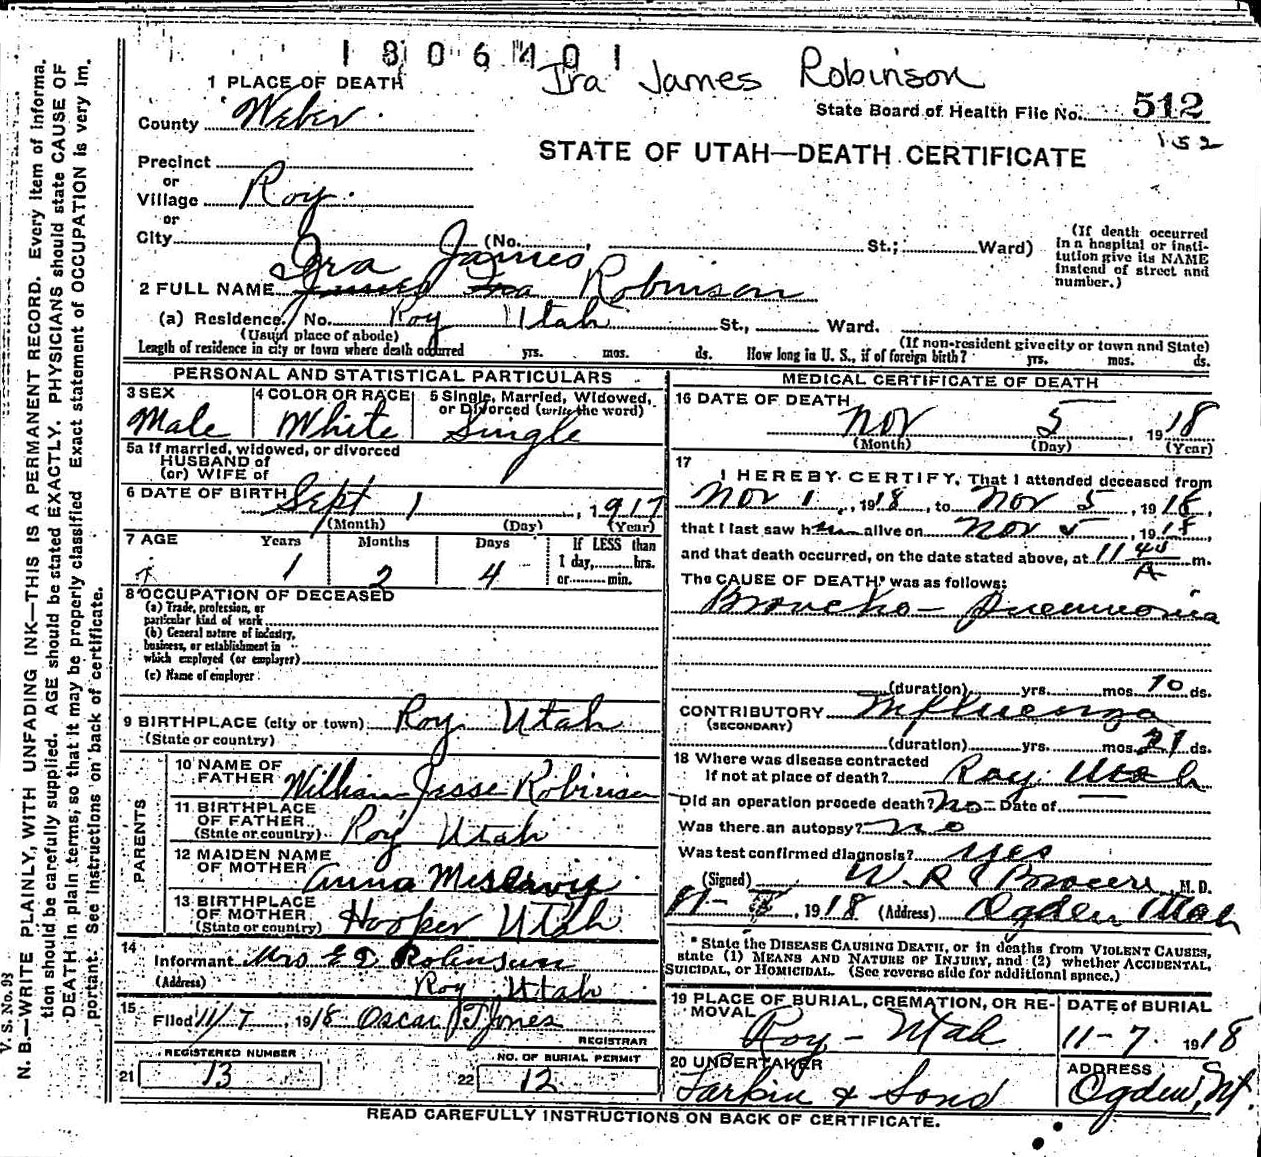 1806401
Ira James Robinson
1 PLACE OF DEATH
State Board of Health File No. 512
County Weber
152
STATE OF UTAH—DEATH CERTIFICATE
Precinct
or
Village Roy
or
City (No. , St.; Ward)
(If death occurred in a hospital or institution give its NAME instead of street and number.)
Ira James
2 FULL NAME James Ira Robinson
(a) Residence. No. Roy Utah St., Ward.
(Usual place of abode) (If non-resident give city or town and State)
Length of residence in city or town where death occurred yrs. mos. ds. How long in U. S., if of foreign birth? yrs. mos. ds.
PERSONAL AND STATISTICAL PARTICULARS
3 SEX
Male
4 COLOR OR RACE
White
5 Single, Married, Widowed, or Divorced (write the word)
Single
5a If married, widowed, or divorced
HUSBAND of
(or) WIFE of
6 DATE OF BIRTH Sept 1, 1917
(Month) (Day) (Year)
7 AGE Years Months Days If LESS than
1 day, hrs.
or min.
1 2 4
8 OCCUPATION OF DECEASED
(a) Trade, profession, or
particular kind of work
(b) General nature of industry,
business, or establishment in
which employed (or employer)
(c) Name of employer
9 BIRTHPLACE (city or town) Roy Utah
(State or country)
PARENTS
10 NAME OF
FATHER William Jesse Robinson
11 BIRTHPLACE
OF FATHER
(State or country) Roy Utah
12 MAIDEN NAME
OF MOTHER Anna
13 BIRTHPLACE
OF MOTHER
(State or country) Hooper Utah
14
Informant Mrs E D Robinson
(Address) Roy Utah
15
Filed 11/7, 1918 Oscar T Jones
REGISTRAR
REGISTERED NUMBER
21 13
NO. OF BURIAL PERMIT
22 12
MEDICAL CERTIFICATE OF DEATH
16 DATE OF DEATH
Nov 5, 1918
(Month) (Day) (Year)
17
I HEREBY CERTIFY, That I attended deceased from
Nov 1, 1918, to Nov 5, 1918,
that I last saw him alive on Nov 5, 1918,
and that death occurred, on the date stated above, at 11 45 A m.
The CAUSE OF DEATH* was as follows:
Broncho-Pneumonia
(duration) yrs. mos. 10 ds.
CONTRIBUTORY Influenza
(SECONDARY)
(duration) yrs. mos. 21 ds.
18 Where was disease contracted
if not at place of death? Roy Utah
Did an operation precede death? No Date of
Was there an autopsy? no
Was test confirmed diagnosis? yes
(Signed) W. R. M. D.
, 1918 (Address) Ogden Utah
* State the DISEASE CAUSING DEATH, or in deaths from VIOLENT CAUSES,
state (1) MEANS AND NATURE OF INJURY, and (2) whether ACCIDENTAL,
SUICIDAL, or HOMICIDAL. (See reverse side for additional space.)
19 PLACE OF BURIAL, CREMATION, OR RE-
MOVAL
Roy - Utah
DATE of BURIAL
11-7 1918
20 UNDERTAKER
Larkin & Sons
ADDRESS
Ogden, Ut.
READ CAREFULLY INSTRUCTIONS ON BACK OF CERTIFICATE.
V. S. No. 93
N. B.—WRITE PLAINLY, WITH UNFADING INK—THIS IS A PERMANENT RECORD. Every item of informa-
tion should be carefully supplied. AGE should be stated EXACTLY. PHYSICIANS should state CAUSE OF
DEATH in plain terms, so that it may be properly classified. Exact statement of OCCUPATION is very im-
portant. See instructions on back of certificate.